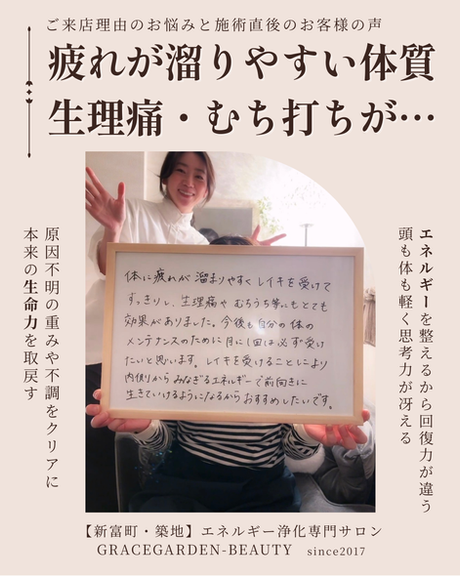 ご来店理由のお悩みと施術直後のお客様の声
疲れが溜りやすい体質
生理痛・むち打ちが…
エネルギーを整えるから回復力が違う
頭も体も軽く思考力が冴える
体に疲れが溜まりやすくレイキを受けて
すっきりし、生理痛や むちうち等にもとても
効果がありました。今後も自分の体の
メンテナンスのために月に1回は必ず受け
たいと思います。レイキを受けることにより
内側から みなぎるエネルギーで前向きに
生きていけるようになるからおすすめしたいです。
原因不明の重みや不調をクリアに
本来の生命力を取戻す
【新富町・築地】エネルギー浄化専門サロン
GRACEGARDEN-BEAUTY since2017